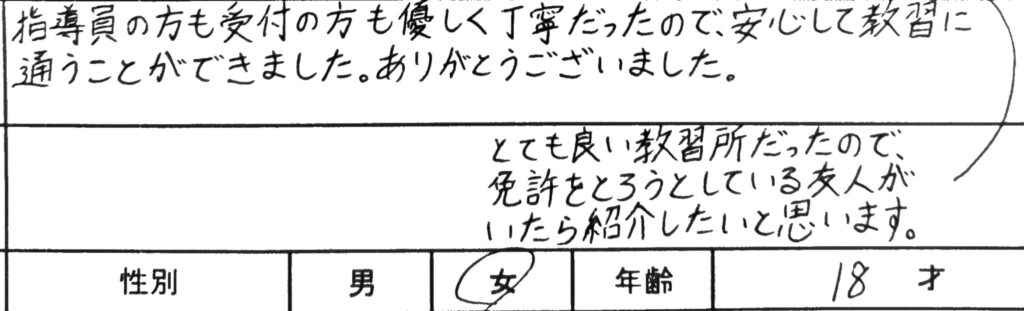 指導員の方も受付の方も優しく丁寧だったので、安心して教習に
通うことができました。ありがとうございました。
とても良い教習所だったので、
免許をとろうとしている友人が
いたら紹介したいと思います。
性別 男 女 年齢 18 才